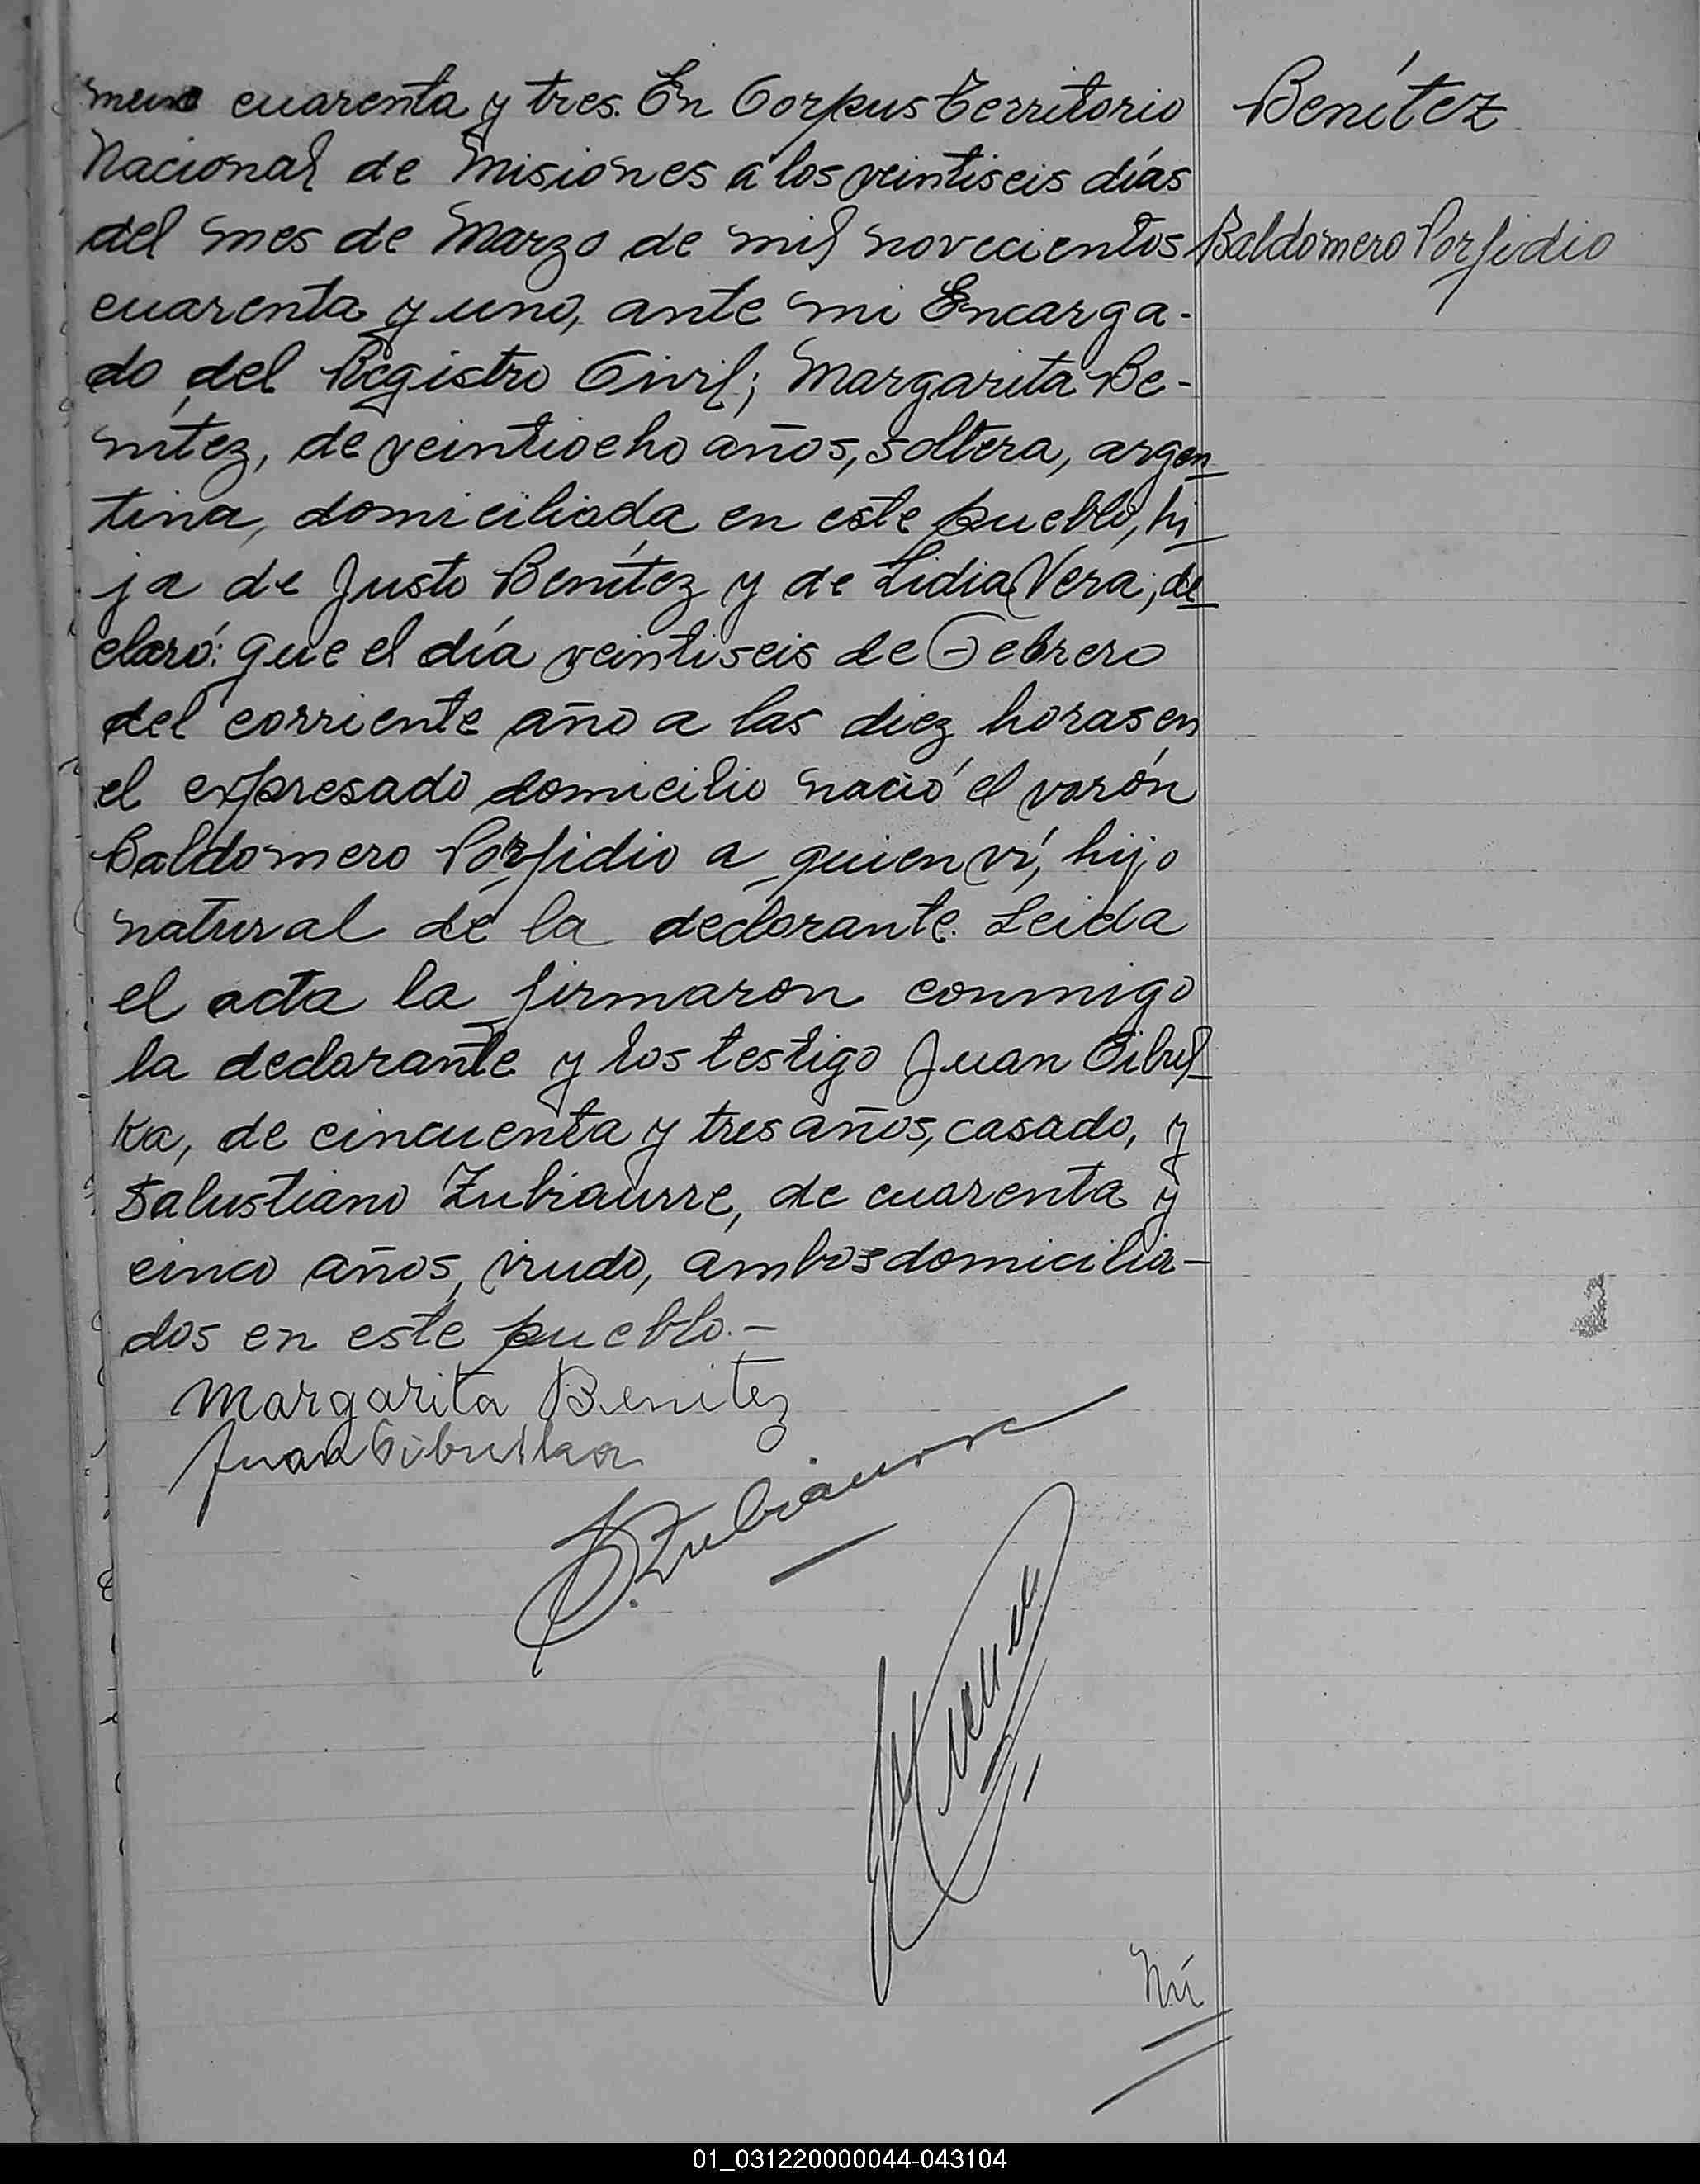 mero cuarenta y tres. En Corpus Territorio
Nacional de Misiones a los veintiseis días
del mes de Marzo de mil novecientos
cuarenta y uno, ante mi Encarga-
do del Registro Civil; Margarita Be-
nítez, de veintiocho años, soltera, argen
tina, domiciliada en este pueblo, hi
ja de Justo Benítez y de Lidia Vera, de
claró: que el día veintiseis de Febrero
del corriente año a las diez horas en
el expresado domicilio nació el varón
Baldomero Porfidio a quien ví, hijo
natural de la declarante. Leida
el acta la firmaron conmigo
la declarante y los testigo Juan Cibul
ka, de cincuenta y tres años, casado, y
Salustiano Zubiaurre, de cuarenta y
cinco años, viudo, ambos domicilia-
dos en este pueblo.-
Margarita Benitez
Juan Cibulka
S. Zubiaurre
Nú
Benítez
Baldomero Porfidio
01_031220000044-043104